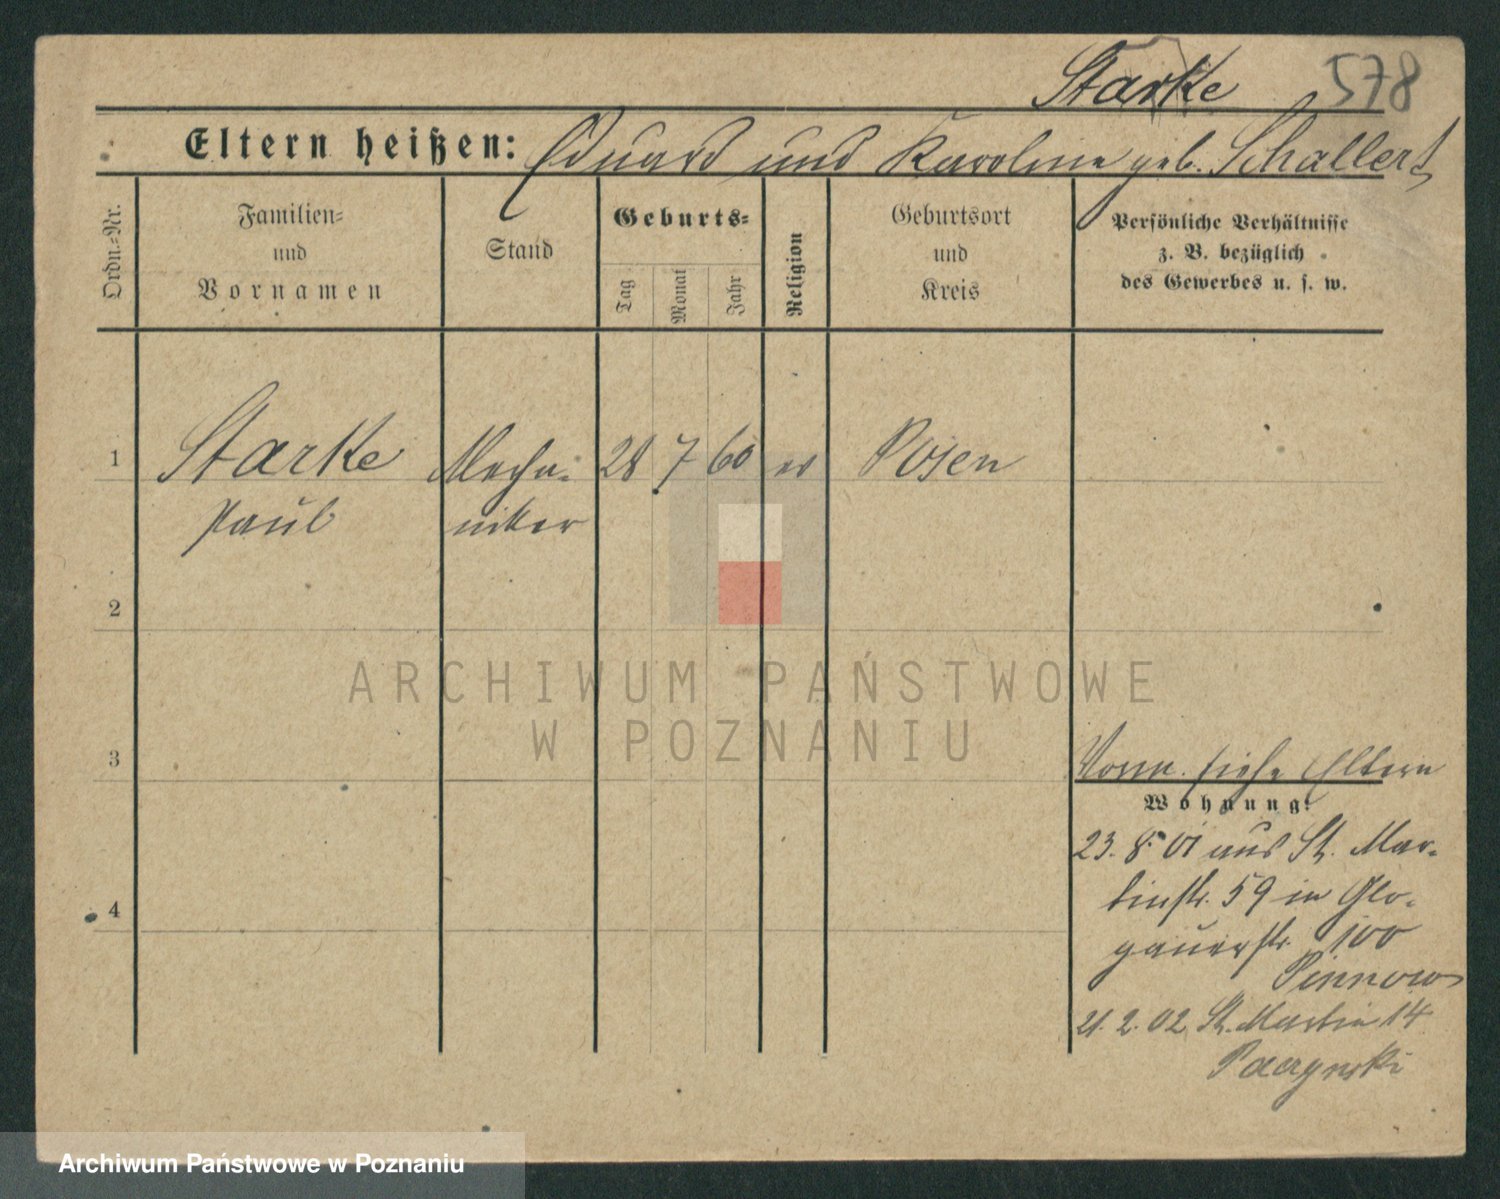 Starke 578
Eltern heißen: Eduard und Karoline geb. Schallert
Ordn.-Nr.
Familien-
und
Vornamen
Stand
Geburts-
Tag
Monat
Jahr
Religion
Geburtsort
und
Kreis
Persönliche Verhältnisse
z. B. bezüglich
des Gewerbes u. s. w.
1 Starke Mecha- 28 7 60 ev Posen
Paul niker
2
ARCHIWUM PAŃSTWOWE
W POZNANIU
3
Vorm. siehe Eltern
Wohnung:
23. 8. 01 aus St. Mar-
tinstr. 59 in Glo-
4
gauerstr. 100
Pinnow
21. 2. 02 St. Martin 14
Archiwum Państwowe w Poznaniu